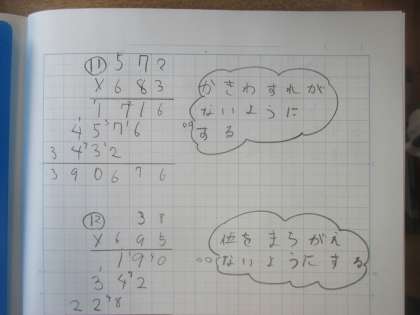 ⑪ 572
× 683
1716
4576
3432
390676
かきわすれが
ないように
する
⑫ 38
× 695
190
342
228
位をまちがえ
ないようにする